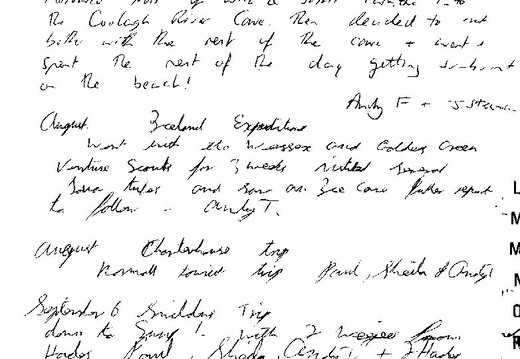 the Coolagh River Cave. Then decided to not
bother with the rest of the cave + went &
spent the rest of the day getting sunburnt
on the beach!
Andy F +
August. Iceland Expedition
Went with the Wessex and Golders Green
Venture Scouts for 3 weeks visited several
lava tubes and saw an Ice Cave fuller report
to follow. Andy T.
August Charterhouse trip
Normal tourist trip Paul, Sheila & Andy T
September 6 Swildons Trip
down to Sump 1. With 2
Paul, Sheila, Andy T. +
L
M
M
N
O
R